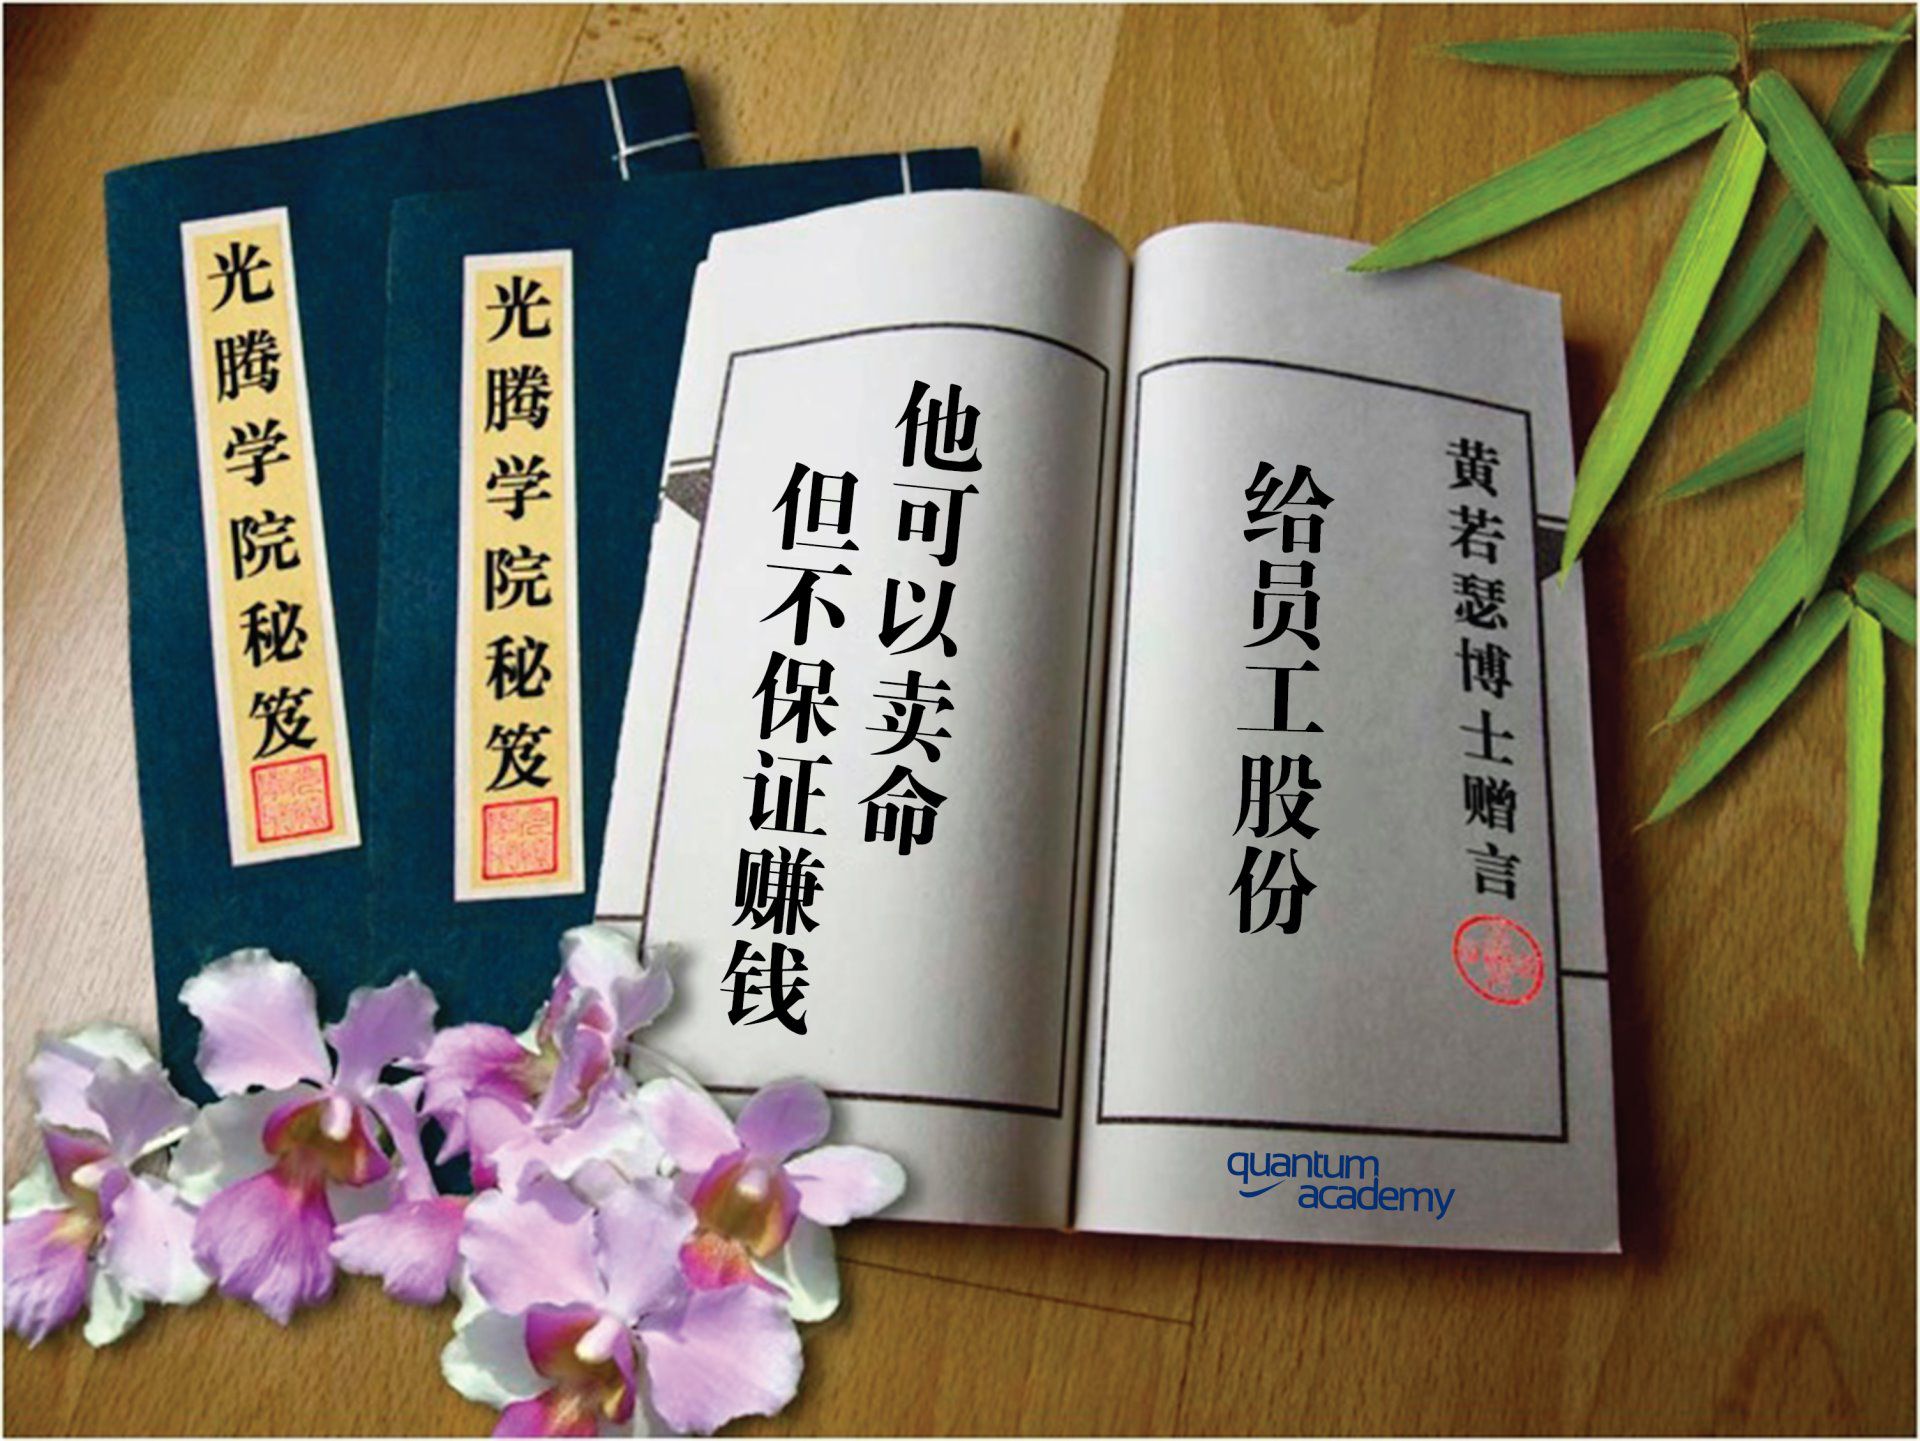 光腾学院秘笈
光腾学院秘笈
黄若瑟博士赠言
给员工股份
他可以卖命
但不保证赚钱
quantum
academy